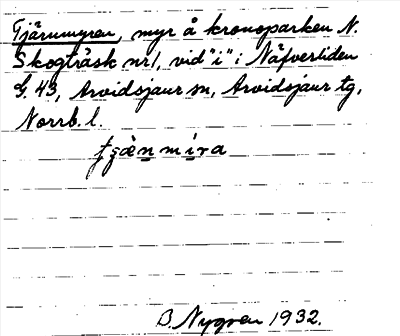 Tjärnmyran, myr å kronoparken N.
Skogträsk nr1, vid "i" i Näfverliden
G. 43, Arvidsjaur sn, Arvidsjaur tg,
Norrb. l.
B. Nygren 1932.